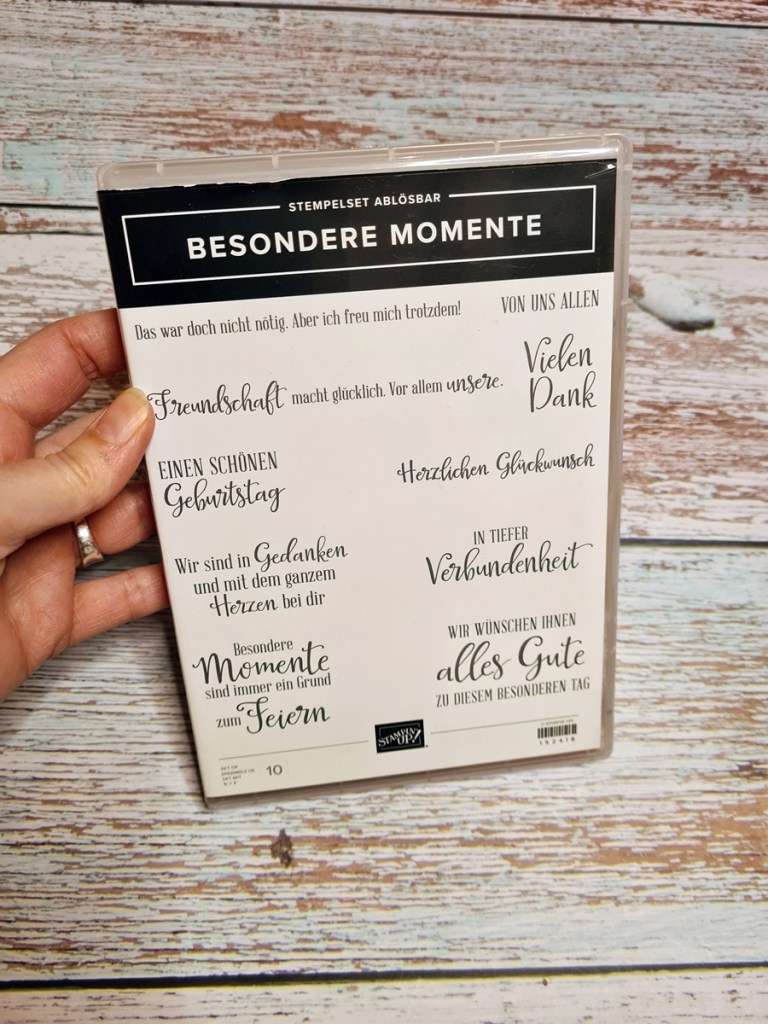 STEMPELSET ABLÖSBAR
BESONDERE MOMENTE
Das war doch nicht nötig. Aber ich freu mich trotzdem!
VON UNS ALLEN
Freundschaft macht glücklich. Vor allem unsere.
Vielen
Dank
EINEN SCHÖNEN
Geburtstag
Herzlichen Glückwunsch
Wir sind in Gedanken
und mit dem ganzem
Herzen bei dir
IN TIEFER
Verbundenheit
Besondere
Momente
sind immer ein Grund
zum Feiern
WIR WÜNSCHEN IHNEN
alles Gute
ZU DIESEM BESONDEREN TAG
STAMPIN' UP!
SET OF
10
152418